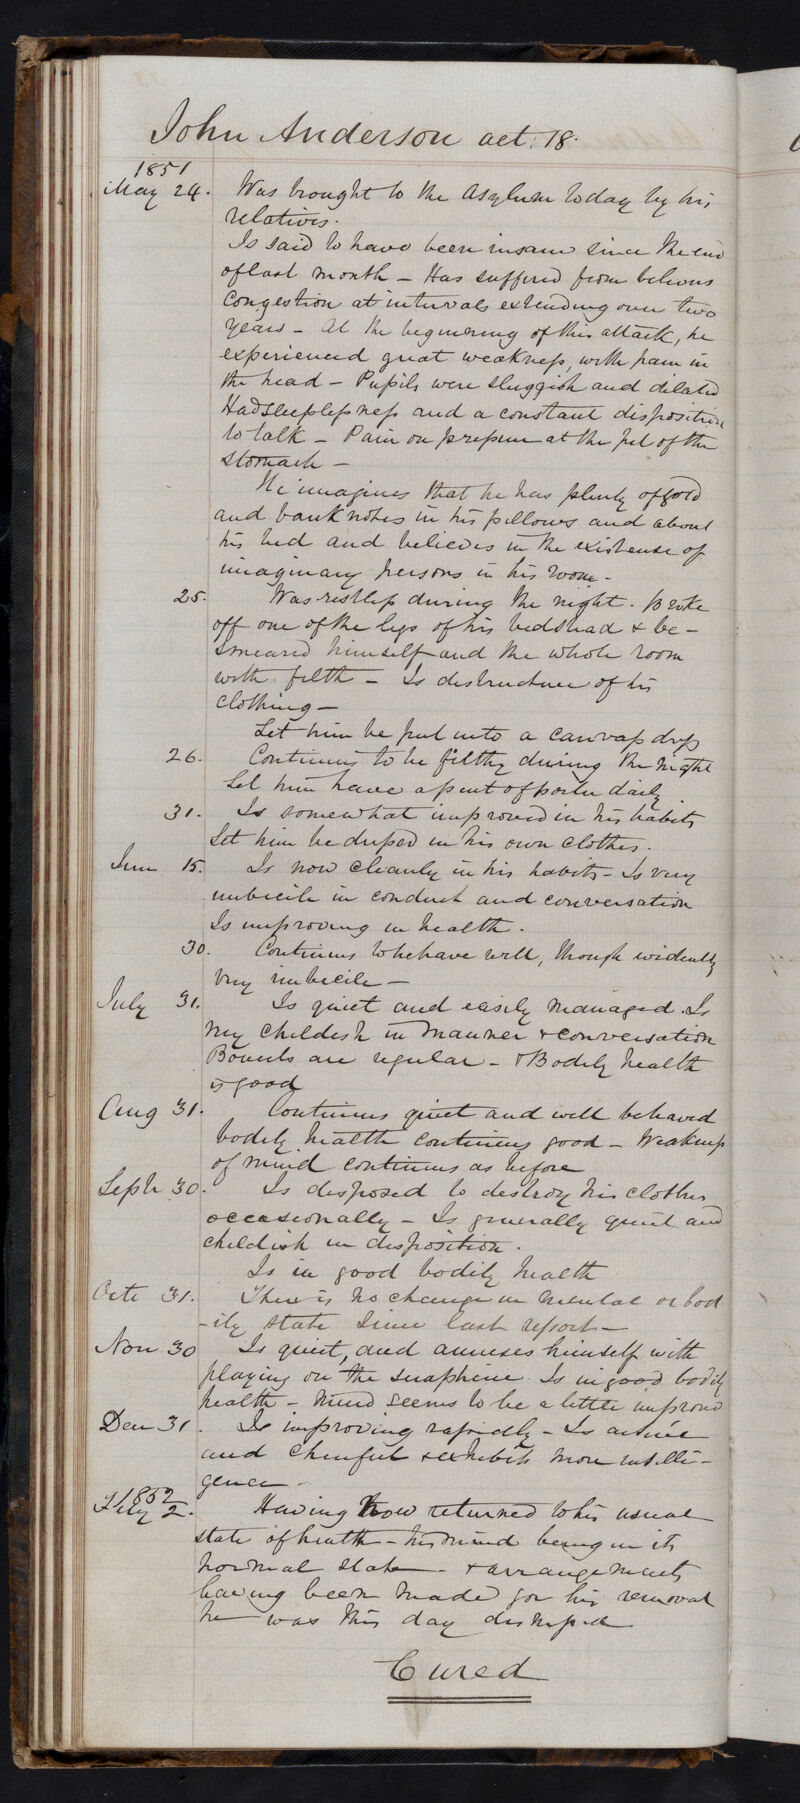 John Anderson aet. 18.
1851
May 24. Was brought to the Asylum today by his
relatives.
Is said to have been insane since the end
of last month – Has suffered from bilious
congestion at intervals extending over two
years – At the beginning of this attack, he
experienced great weakness, with pain in
the head – Pupils were sluggish and dilated
Had sleeplessness and a constant disposition
to talk – Pain on pressure at the pit of the
stomach –
He imagines that he has plenty of gold
and bank notes in his pillows and about
his bed and believes in the existence of
imaginary persons in his room.
25. Was restless during the night. Broke
off one of the legs of his bedstead & be-
smeared himself and the whole room
with filth – Is destructive of his
clothing –
Let him be put into a canvass dress
26. Continues to be filthy during the night
Let him have a pint of porter daily
31. Is somewhat improved in his habits
Let him be dressed in his own clothes.
June 15. Is now cleanly in his habits – Is very
imbecile in conduct and conversation
Is improving in health.
30. Continues to behave well, though evidently
very imbecile –
July 31. Is quiet and easily managed. Is
very childish in manner & conversation
Bowels are regular – & Bodily health
is good
Aug 31. Continues quiet and well behaved
bodily health continues good – Weakness
of mind continues as before
Septr 30. Is disposed to destroy his clothes
occasionally – Is generally quiet and
childish in disposition.
Is in good bodily health
Octr 31. There is no change in mental or bod
-ily state since last report –
Nov 30 Is quiet, and amuses himself with
playing on the seraphine. Is in good bodily
health – Mind seems to be a little improved
Decr 31. Is improving rapidly – Is active
and cheerful & exhibits more intelli-
gence –
1852
Feby 2. Having now returned to his usual
state of health – his mind being in its
normal state – & arrangements
having been made for his removal
he was this day dismissed
Cured